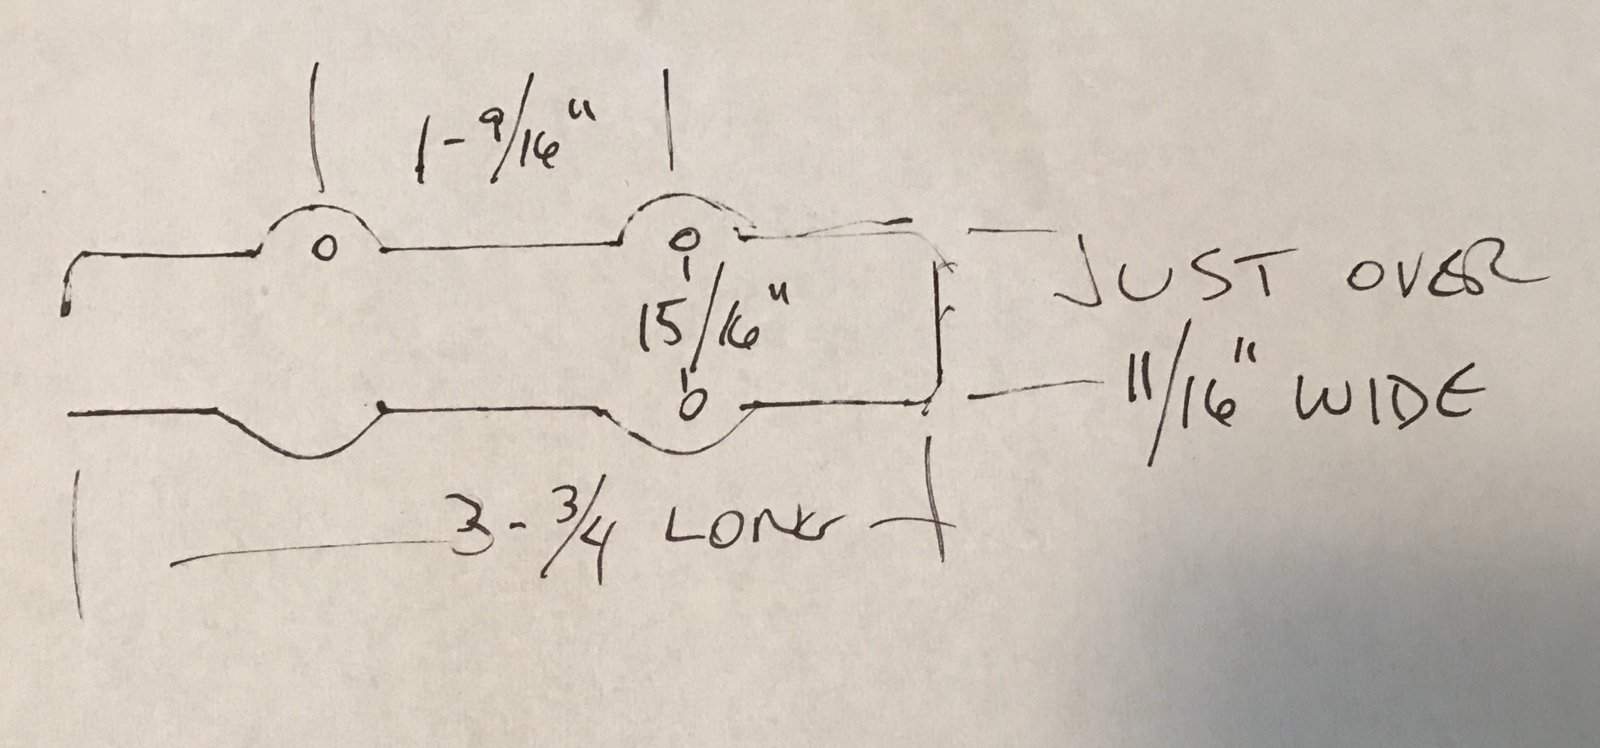 1-9/16"
15/16"
JUST OVER
11/16" WIDE
3-3/4 LONG